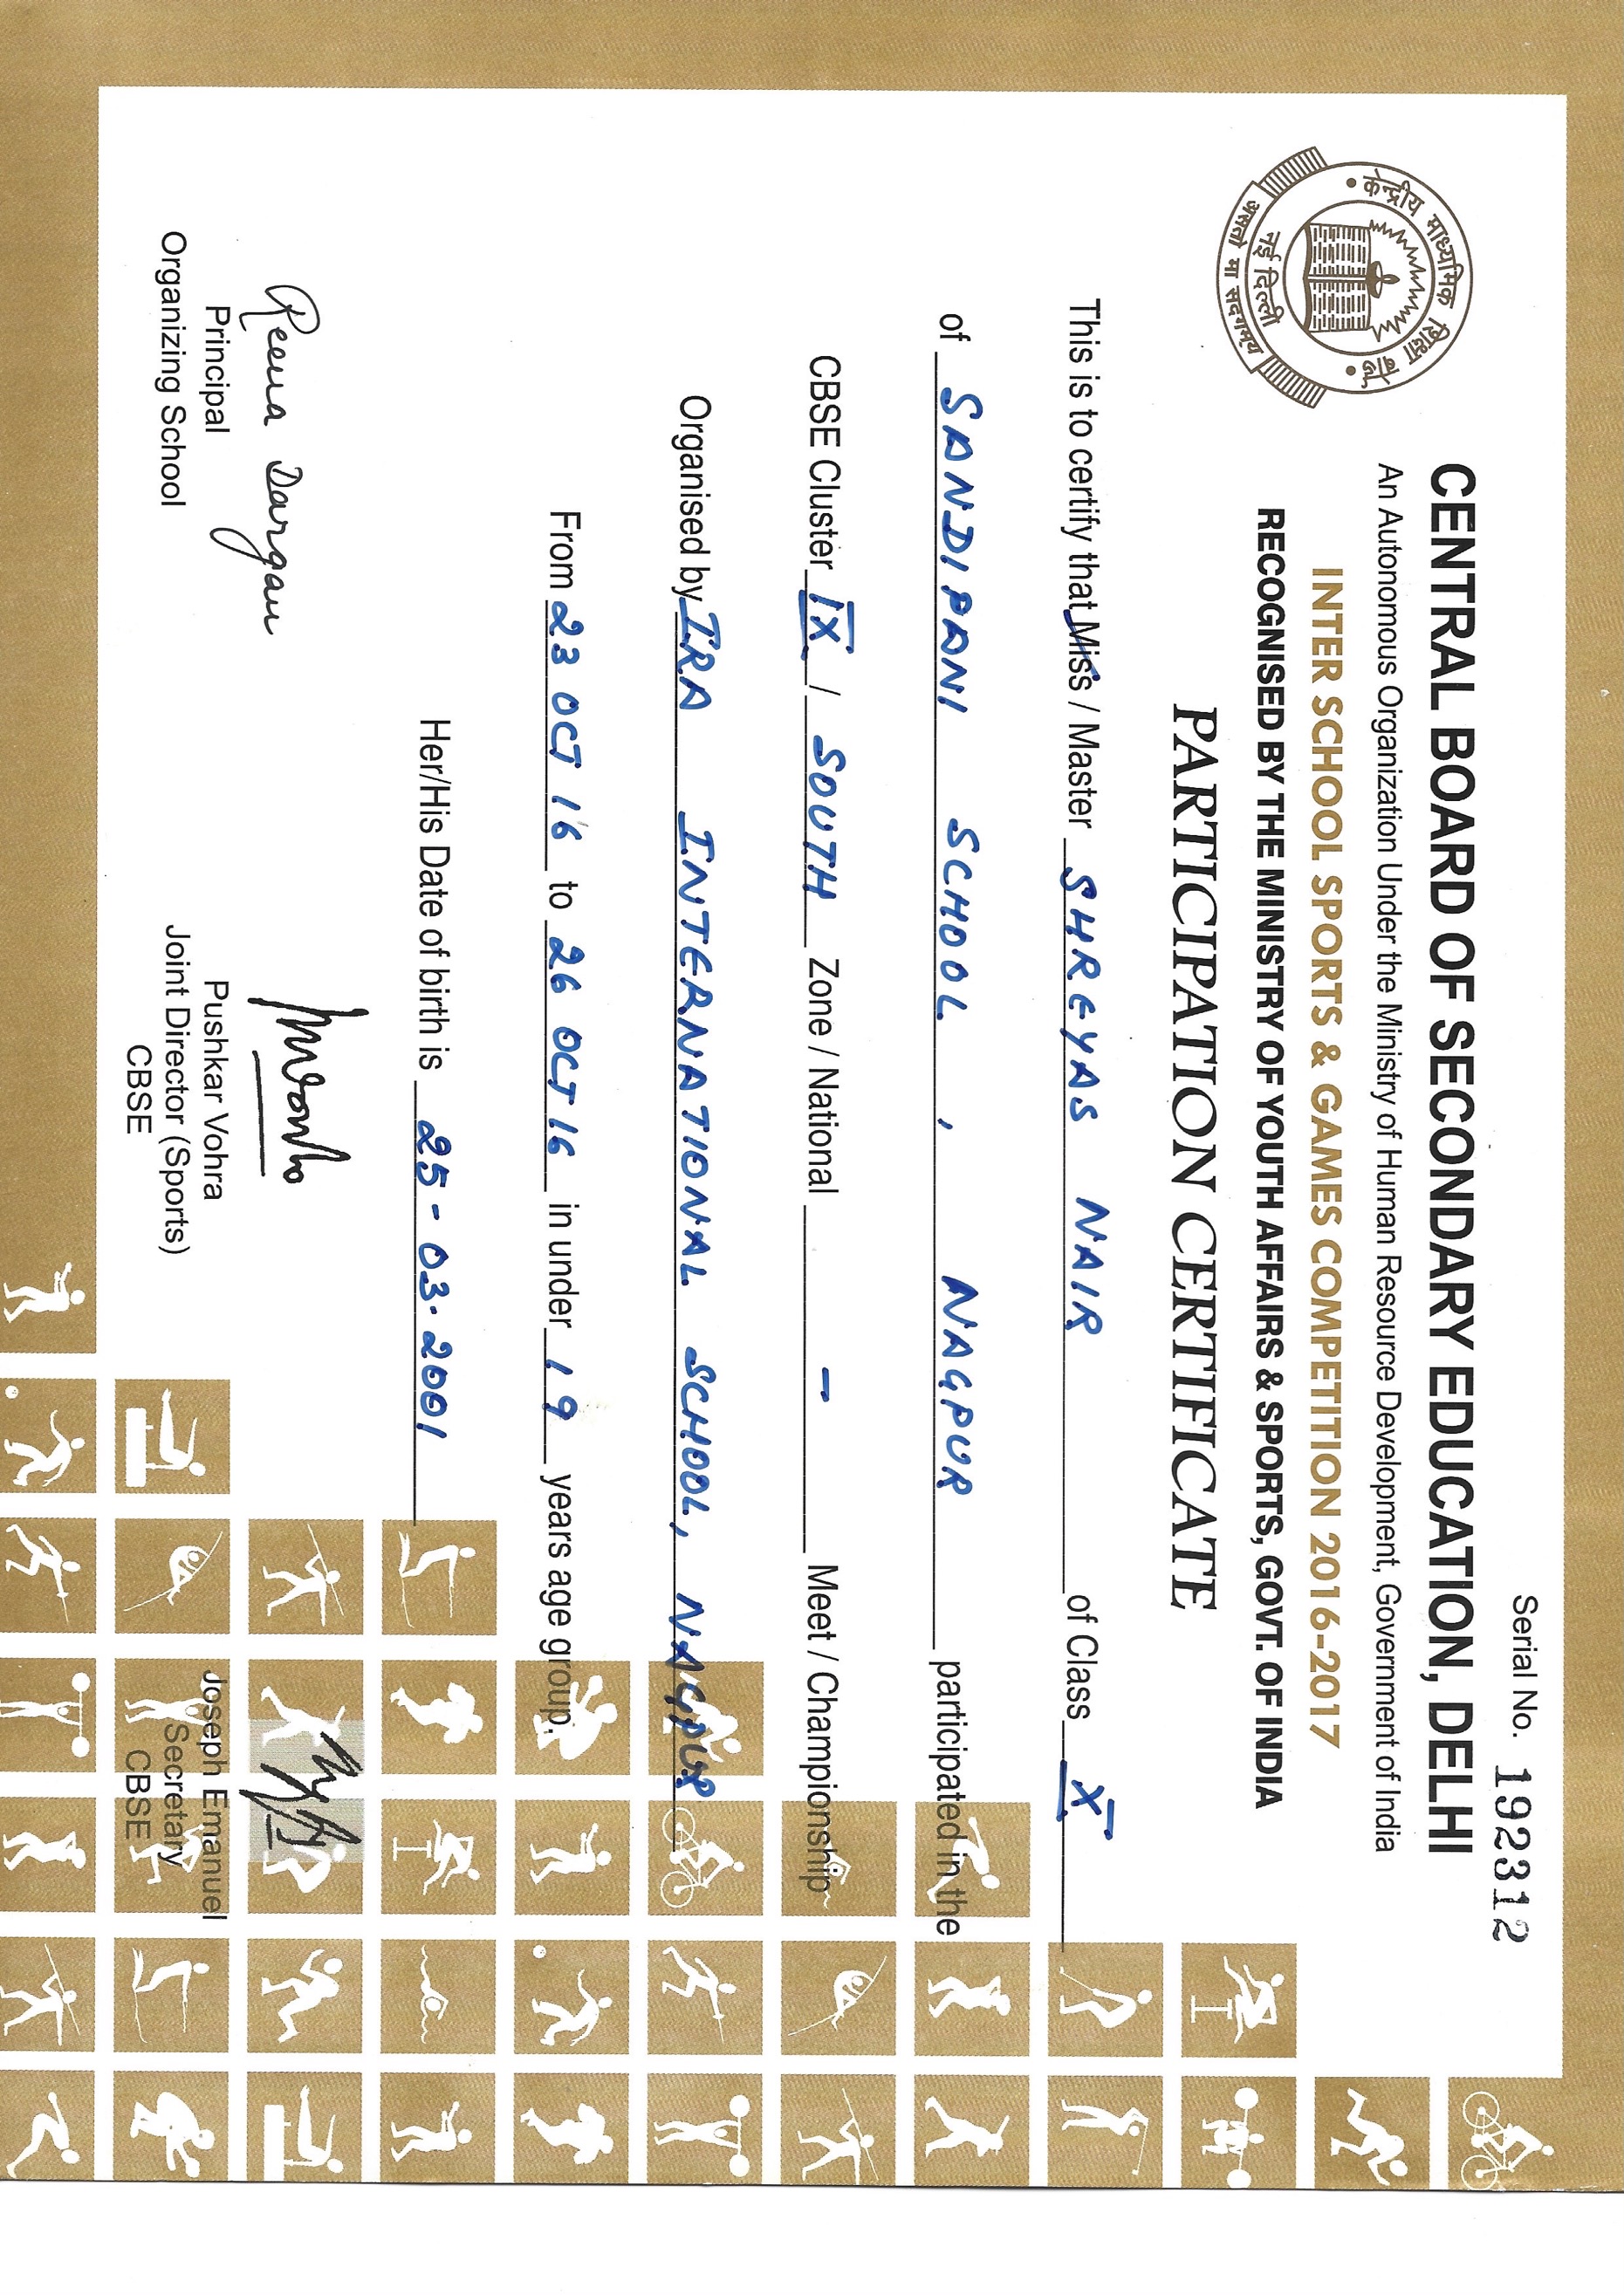 Serial No. 192312
केन्द्रीय माध्यमिक शिक्षा बोर्ड
नई दिल्ली
असतो मा सदगमय
CENTRAL BOARD OF SECONDARY EDUCATION, DELHI
An Autonomous Organization Under the Ministry of Human Resource Development, Government of India
INTER SCHOOL SPORTS & GAMES COMPETITION 2016-2017
RECOGNISED BY THE MINISTRY OF YOUTH AFFAIRS & SPORTS, GOVT. OF INDIA
PARTICIPATION CERTIFICATE
This is to certify that Miss / Master SHREYAS NAIR of Class X
of SANDIPANI SCHOOL , NAGPUR participated in the
CBSE Cluster IX / SOUTH Zone / National - Meet / Championship
Organised by IRA INTERNATIONAL SCHOOL, NAGPUR
From 23 OCT 16 to 26 OCT 16 in under 19 years age group.
Her/His Date of birth is 25-03-2001
Reena Dargan
Principal
Organizing School
Pushkar Vohra
Joint Director (Sports)
CBSE
Joseph Emanuel
Secretary
CBSE